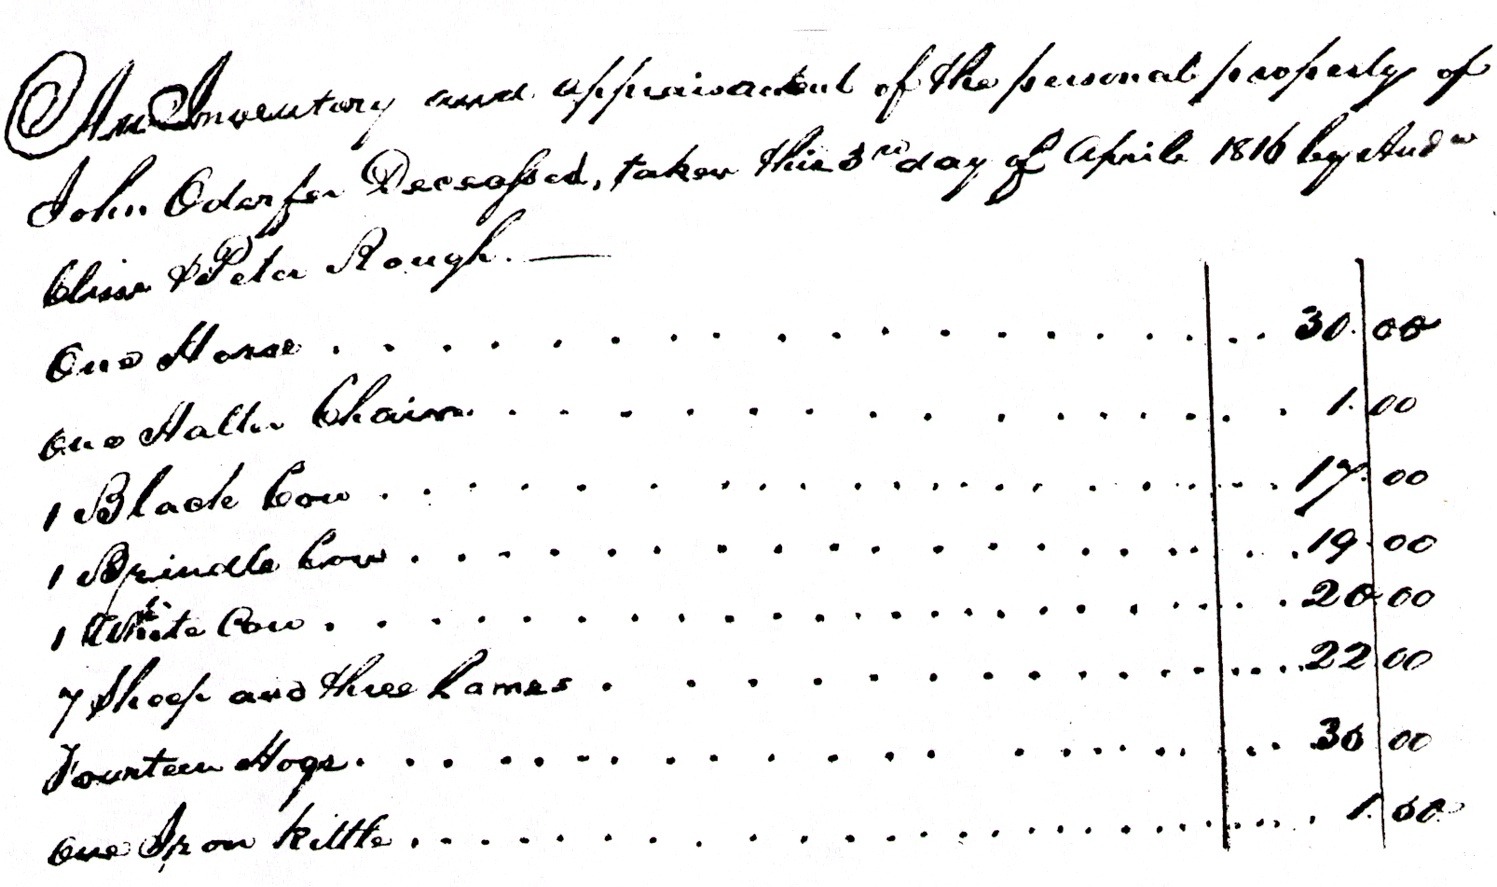 An Inventory and appraisment of the personal property of
John Odorfer Deceassed, taken this 3rd day of April 1816 by Andw
Cline & Peter Rough.
One Horse . . . . . . . . . . . . . . . . . . 30.00
One Halter Chain . . . . . . . . . . . . . . . 1.00
1 Black Cow . . . . . . . . . . . . . . . . . . 17.00
1 Brindle Cow . . . . . . . . . . . . . . . . . 19.00
1 White Cow . . . . . . . . . . . . . . . . . . 20.00
7 Sheep and three Lames . . . . . . . . . . . . 22.00
Fourteen Hogs . . . . . . . . . . . . . . . . . 00
One Iron kittle . . . . . . . . . . . . . . . . 1.